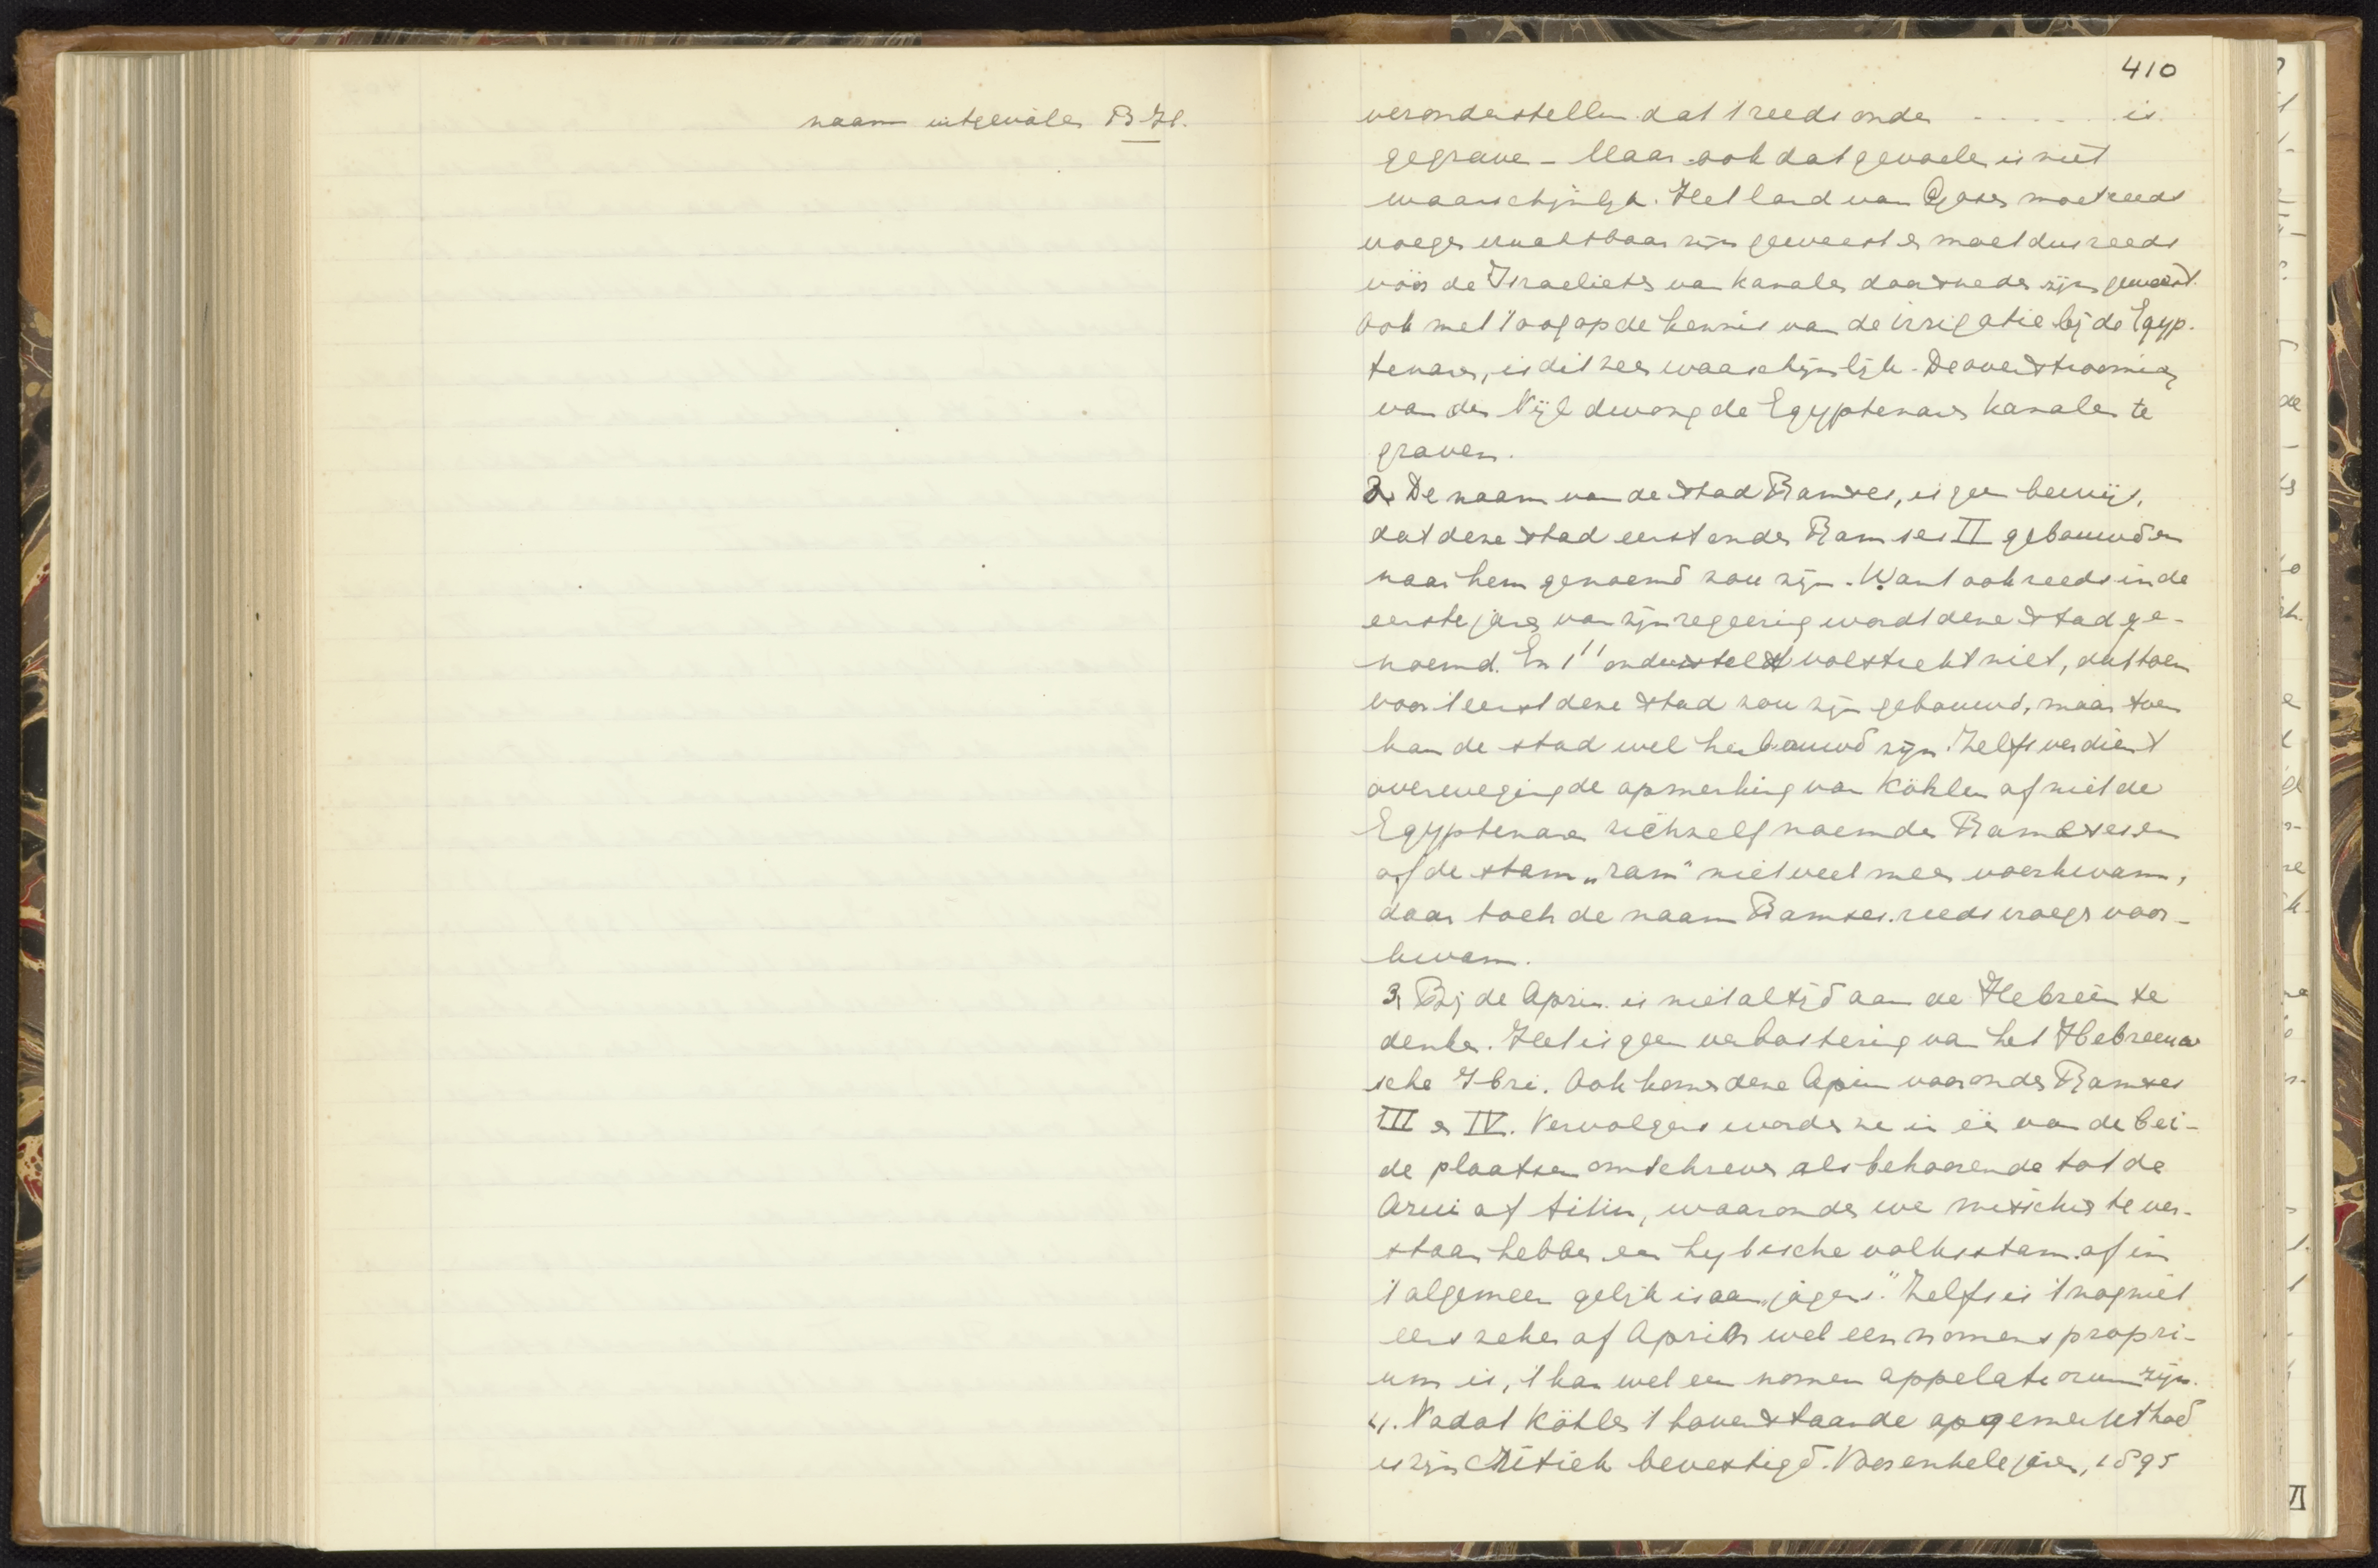 naam uitgevallen B. H.
410
veronderstellen dat 't reeds onder . . . . . . is
gegraven - Maar ook dat gevoelen is niet
waarschijnlijk. Het land van Gosen moet reeds
vroeger vruchtbaar zijn geweest en moet dus reeds
vóór de Israelieten van kanalen doorsneden zijn geweest.
Ook met 't oog op de kennis van de irrigatie bij de Egyp-
tenaren, is dit zeer waarschijnlijk. De overstrooming
van den Nijl dwong de Egyptenaren kanalen te
graven.
2. De naam van de stad Ramses, is geen bewijs,
dat deze stad eerst onder Ramses II gebouwd en
naar hem genoemd zou zijn. Want ook reeds in de
eerste jaren van zijn regeering wordt deze stad ge-
noemd. En 1'' onderstelt volstrekt niet, dat toen
voor 't eerst deze stad zou zijn gebouwd, maar toen
kan de stad wel herbouwd zijn. Zelfs verdient
overweging de opmerking van Köhler of niet de
Egyptenaren zichzelf noemden Ramses en
of de stam „ram" niet veel meer voorkwam,
daar toch de naam Ramses reeds vroeger voor-
kwam.
3, Bij de Apriu is niet altijd aan de Hebreën te
denken. Het is geen verbastering van het Hebreeuw
sche Ibri. Ook komen deze Apriu voor onder Ramses
III en IV. Vervolgens worden ze in één van de bei-
de plaatsen omschreven als behoorende tot de
, waaronder we misschien te ver-
staan hebben een lybische volksstam of in
't algemeen gelijk is aan „jagers." Zelfs is 't nog niet
eens zeker of Apriu wel een nomen propri-
um is, 't kan wel een nomen appelativum zijn.
4. Nadat Köhler 't bovenstaande opgemerkt had
is zijn critiek bevestigd. Voor enkele jaren, 1895